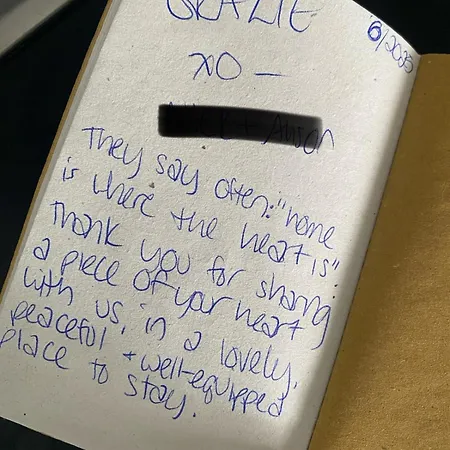 GRAZIE
6/2025
XO —
They say often: "home
is where the heart is"
Thank you for sharing
a piece of your heart
with us, in a lovely,
peaceful + well-equipped
place to stay.